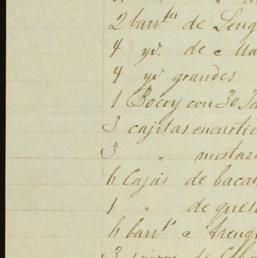 2 barr.tes de Leng
4 yd. de Ma
4 yd grandes
1 Bocoy con 30 Ja
3 cajitas encurtid
3 " mostaz
6 Cajas de bacal
1 " de ques
6 barr.s Arenq
3